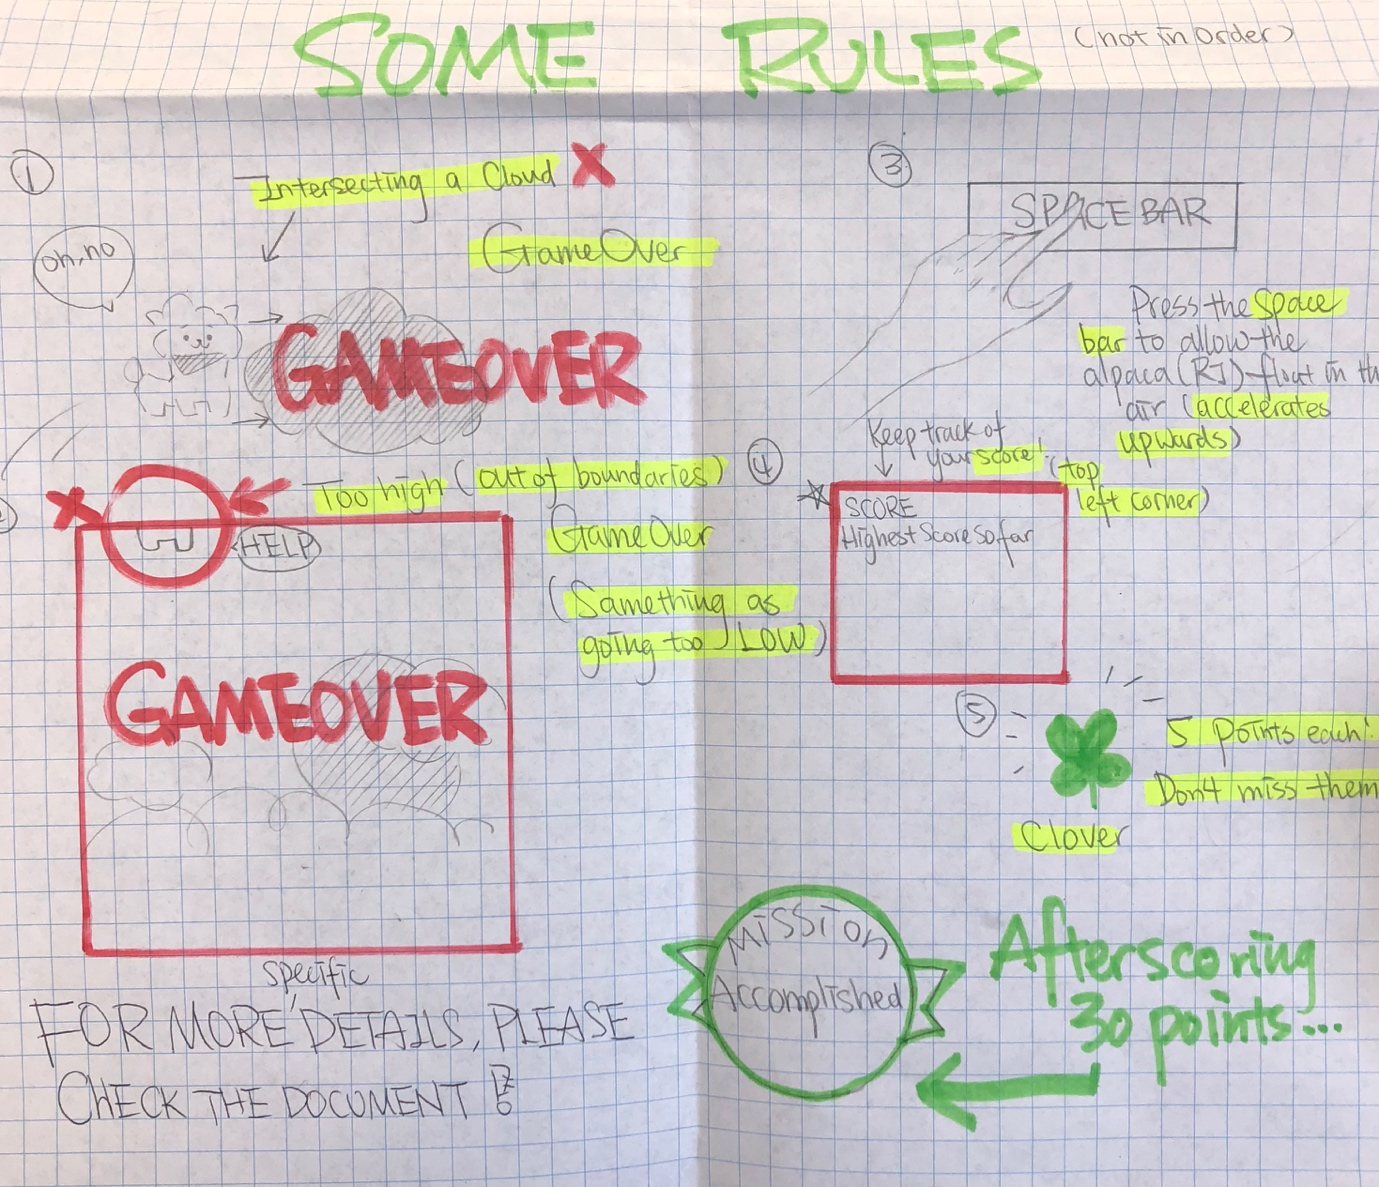 SOME RULES (not in order)
①
Intersecting a Cloud X
GameOver
oh, no
GAMEOVER
②
Too high (out of boundaries)
HELP
GameOver
(Same thing as
going too LOW)
GAMEOVER
specific
FOR MORE DETAILS, PLEASE
CHECK THE DOCUMENT !
③
SPACE BAR
Press the space
bar to allow the
alpaca (RJ) float in th
air (accelerates
upwards)
④
Keep track of
your score!
(top
left corner)
SCORE
Highest Score So far
⑤
5 points each!
Don't miss them
Clover
Mission
Accomplished
After scoring
30 points...